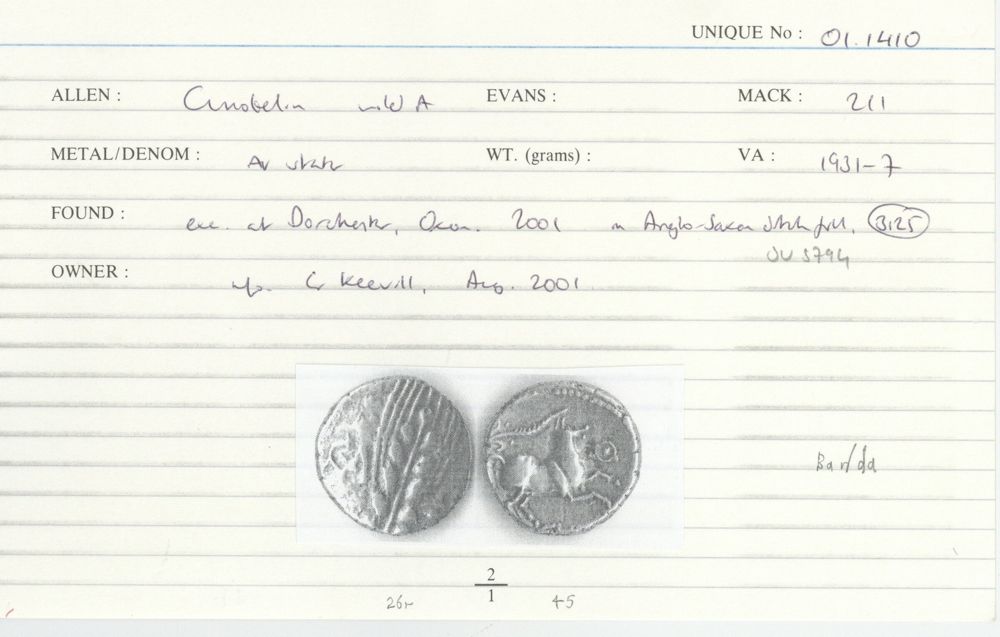 UNIQUE No : 01.1410
ALLEN : Cunobelin wild A EVANS : MACK : 211
METAL/DENOM : AV stater WT. (grams) : VA : 1931-7
FOUND : exc. at Dorchester, Oxon. 2001 in Anglo-Saxon ditch fill, 3125
SU 5794
OWNER : G Keevill, Aug. 2001.
Bar/da
2
1
26r 45